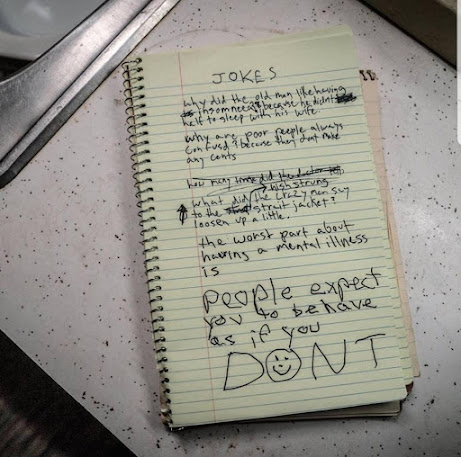 JOKES
why did the old man like having
insomneea? because he didnt
to sleep with his wife
why are poor peeple always
confusd? because they dont make
any cents
how many times did the doctor
high strung
what did the crazy men say
to the strait jacket?
loosen up a little.
the worst part about
having a mental illness
is
people expect
you to behave
as if you
DONT